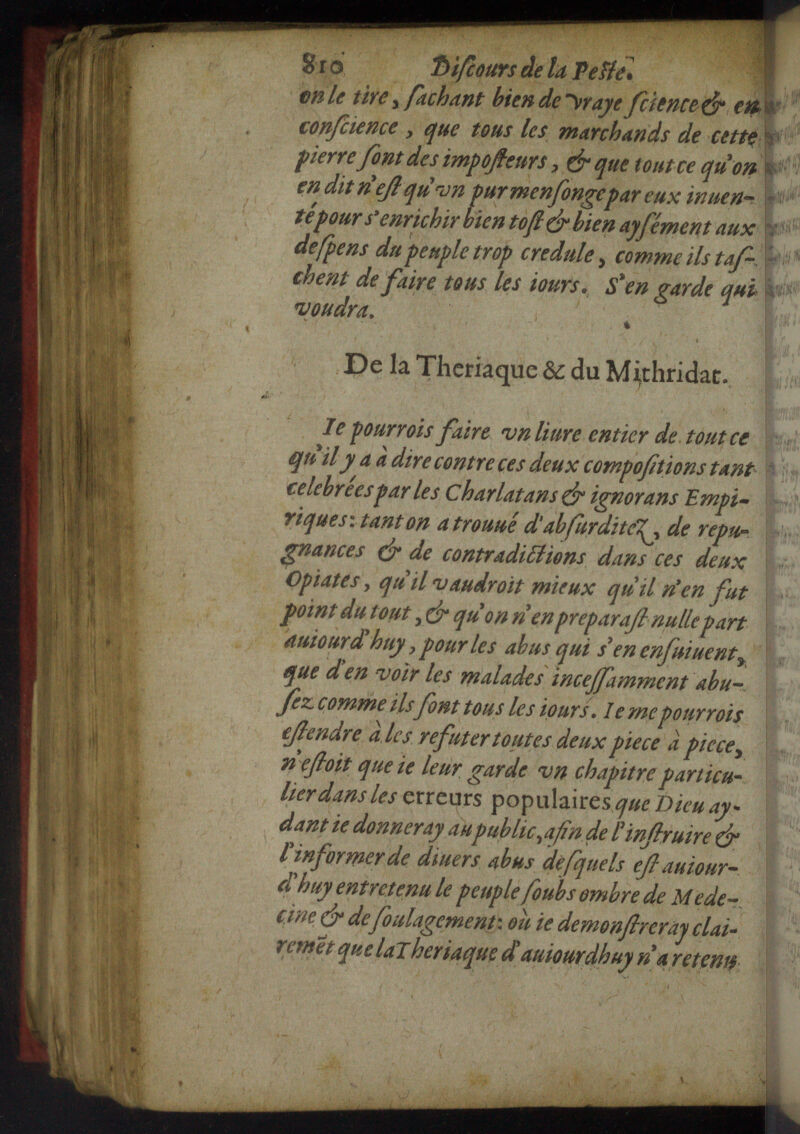 810 Diſcours de la Peſte.
on le tire, ſachant bien de vraye ſcience & en
conſcience, que tous les marchands de cette
pierre ſont des impoſteurs, & que tout ce qu'on
en dit n'eſt qu'vn pur menſonge par eux inuen-
té pour s'enrichir bien toſt & bien ayſément aux
deſpens du peuple trop credule, comme ils taſ-
chent de faire tous les iours. S'en garde qui
voudra.
De la Theriaque & du Mithridat.
Ie pourrois faire vn liure entier de tout ce
qu'il y a à dire contre ces deux compoſitions tant
celebrées par les Charlatans & ignorans Empi-
riques: tant on a trouué d'abſurditez, de repu-
gnances & de contradictions dans ces deux
Opiates, qu'il vaudroit mieux qu'il n'en fut
point du tout, & qu'on n'en preparaſt nulle part
auiourd'huy, pour les abus qui s'en enſuiuent,
que d'en voir les malades inceſſamment abu-
ſez comme ils ſont tous les iours. Ie me pourrois
eſtendre à les refuter toutes deux piece à piece,
n'eſtoit que ie leur garde vn chapitre particu-
lier dans les erreurs populaires que Dieu ay-
dant ie donneray au public, afin de l'inſtruire &
l'informer de diuers abus deſquels eſt auiour-
d'huy entretenu le peuple ſoubs ombre de Mede-
cine & de ſoulagement: où ie demonſtreray clai-
remēt que la Theriaque d'auiourdhuy n'a retenu